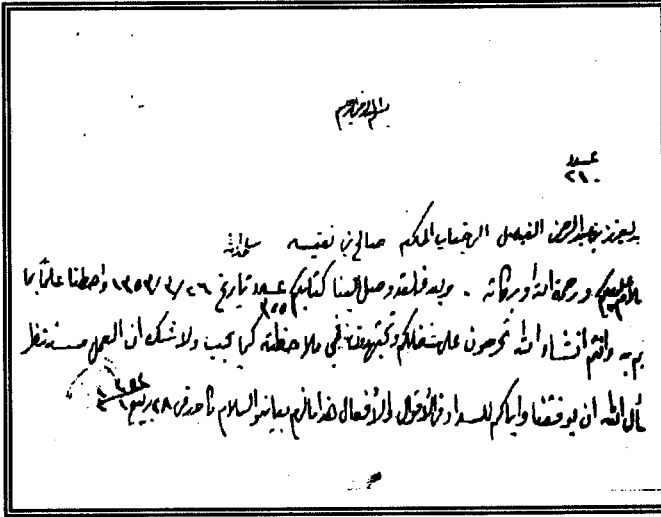 بسم الله الرحمن الرحيم
عدد
٢١٠
عبدالرحمن الفيصل الى جناب المكرم صالح بن نفيسه سلمه الله
السلام عليكم ورحمة الله وبركاته . وبعد فلقد وصل الينا كتابكم عدد ٣٥٥ تاريخ ٢٦/٣/١٣٥٣ واحطنا علماً بما
به وانتم انشاء الله تحرصون على شغلكم وتجتهدون في ملاحظته كما يجب ولا شك ان العمل
الله ان يوفقنا واياكم للسداد في الأقوال والأفعال هذا مالزم بيانه والسلام ٢٨ ربيع